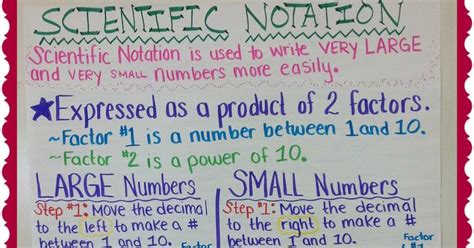 SCIENTIFIC NOTATION
Scientific Notation is used to write VERY LARGE
and VERY SMALL numbers more easily.
★Expressed as a product of 2 factors.
~Factor #1 is a number between 1 and 10.
~Factor #2 is a power of 10.
LARGE Numbers
Step #1: Move the decimal
to the left to make a #
between 1 and 10. Factor
SMALL Numbers
Step #1: Move the decimal
to the right to make a #
between 1 and 10. Factor
#1